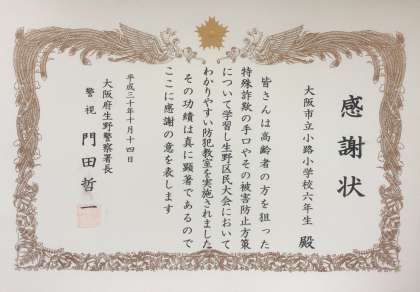 感謝状
大阪市立小路小学校六年生 殿
皆さんは高齢者の方を狙った
特殊詐欺の手口やその被害防止方策
について学習し生野区民大会において
わかりやすい防犯教室を実施されました
その功績は真に顕著であるので
ここに感謝の意を表します
平成三十年十月十四日
大阪府生野警察署長
警視 門田哲一